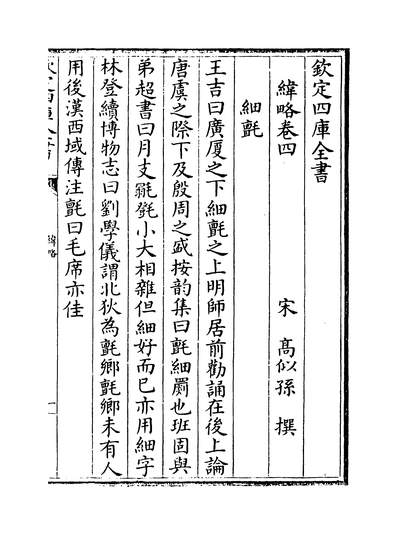 欽定四庫全書
緯略卷四
宋 高似孫 撰
細氈
王吉曰廣厦之下細氈之上明師居前勸誦在後上論
唐虞之際下及殷周之盛按韵集曰氈細罽也班固與
弟超書曰月支㲪㲪小大相雜但細好而已亦用細字
林登續博物志曰劉學儀謂北狄為氈鄉氈鄉未有人
用後漢西域傳注氈曰毛席亦佳
緯略